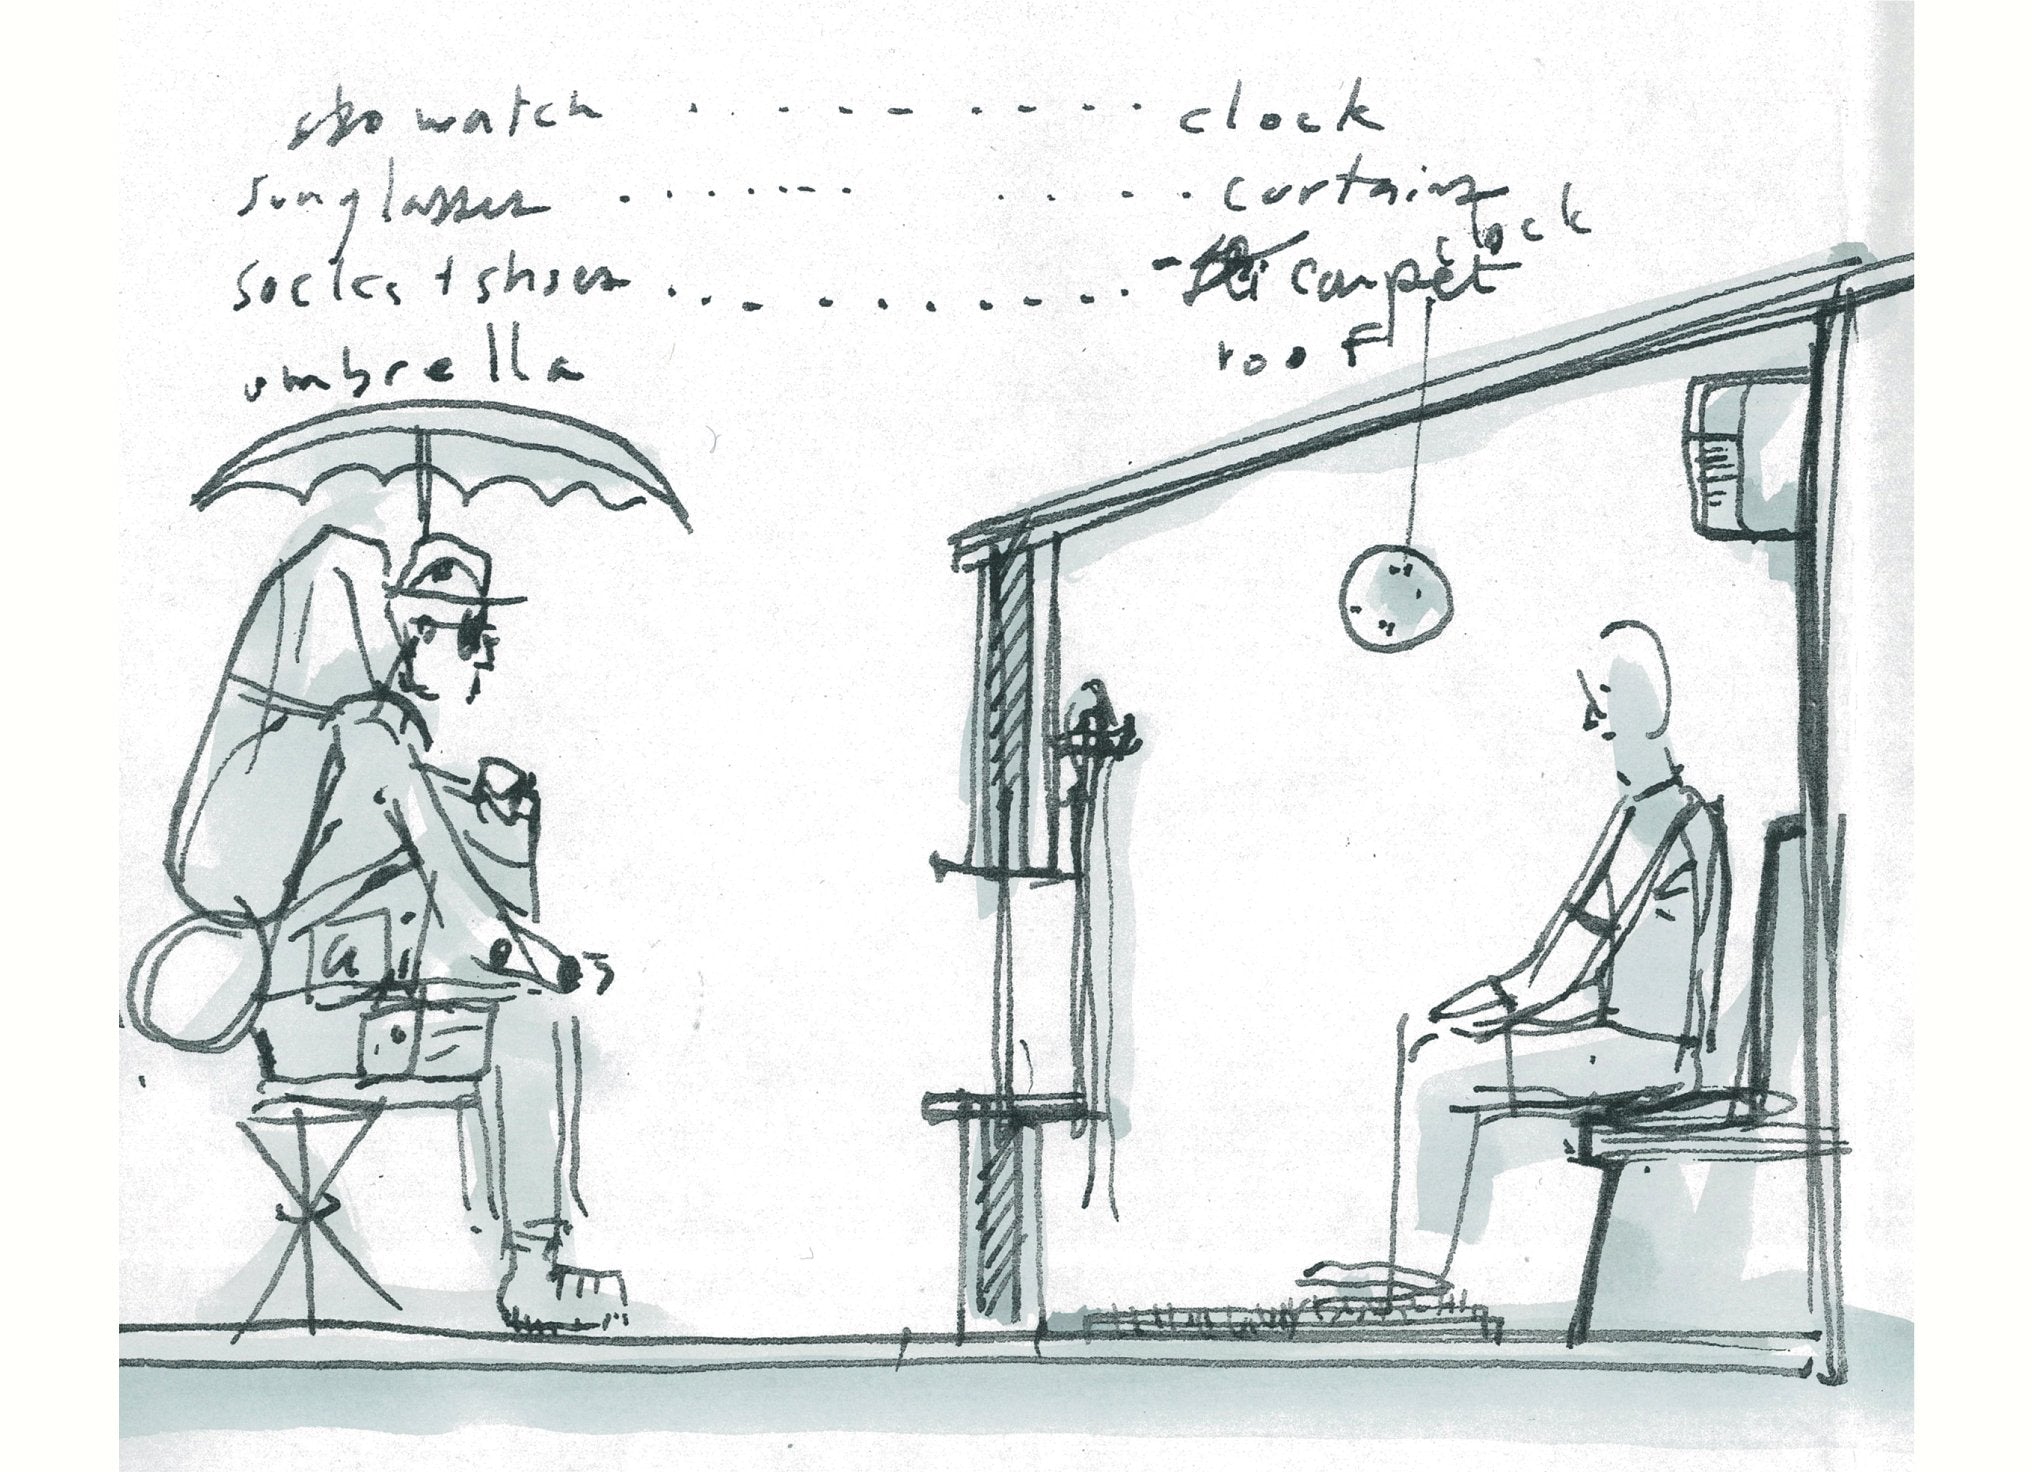 watch . . . . . . . . . clock
sunglasses . . . . . . . . . . curtains
clock
socks + shoes . . . . . . . . . carpet
umbrella roof